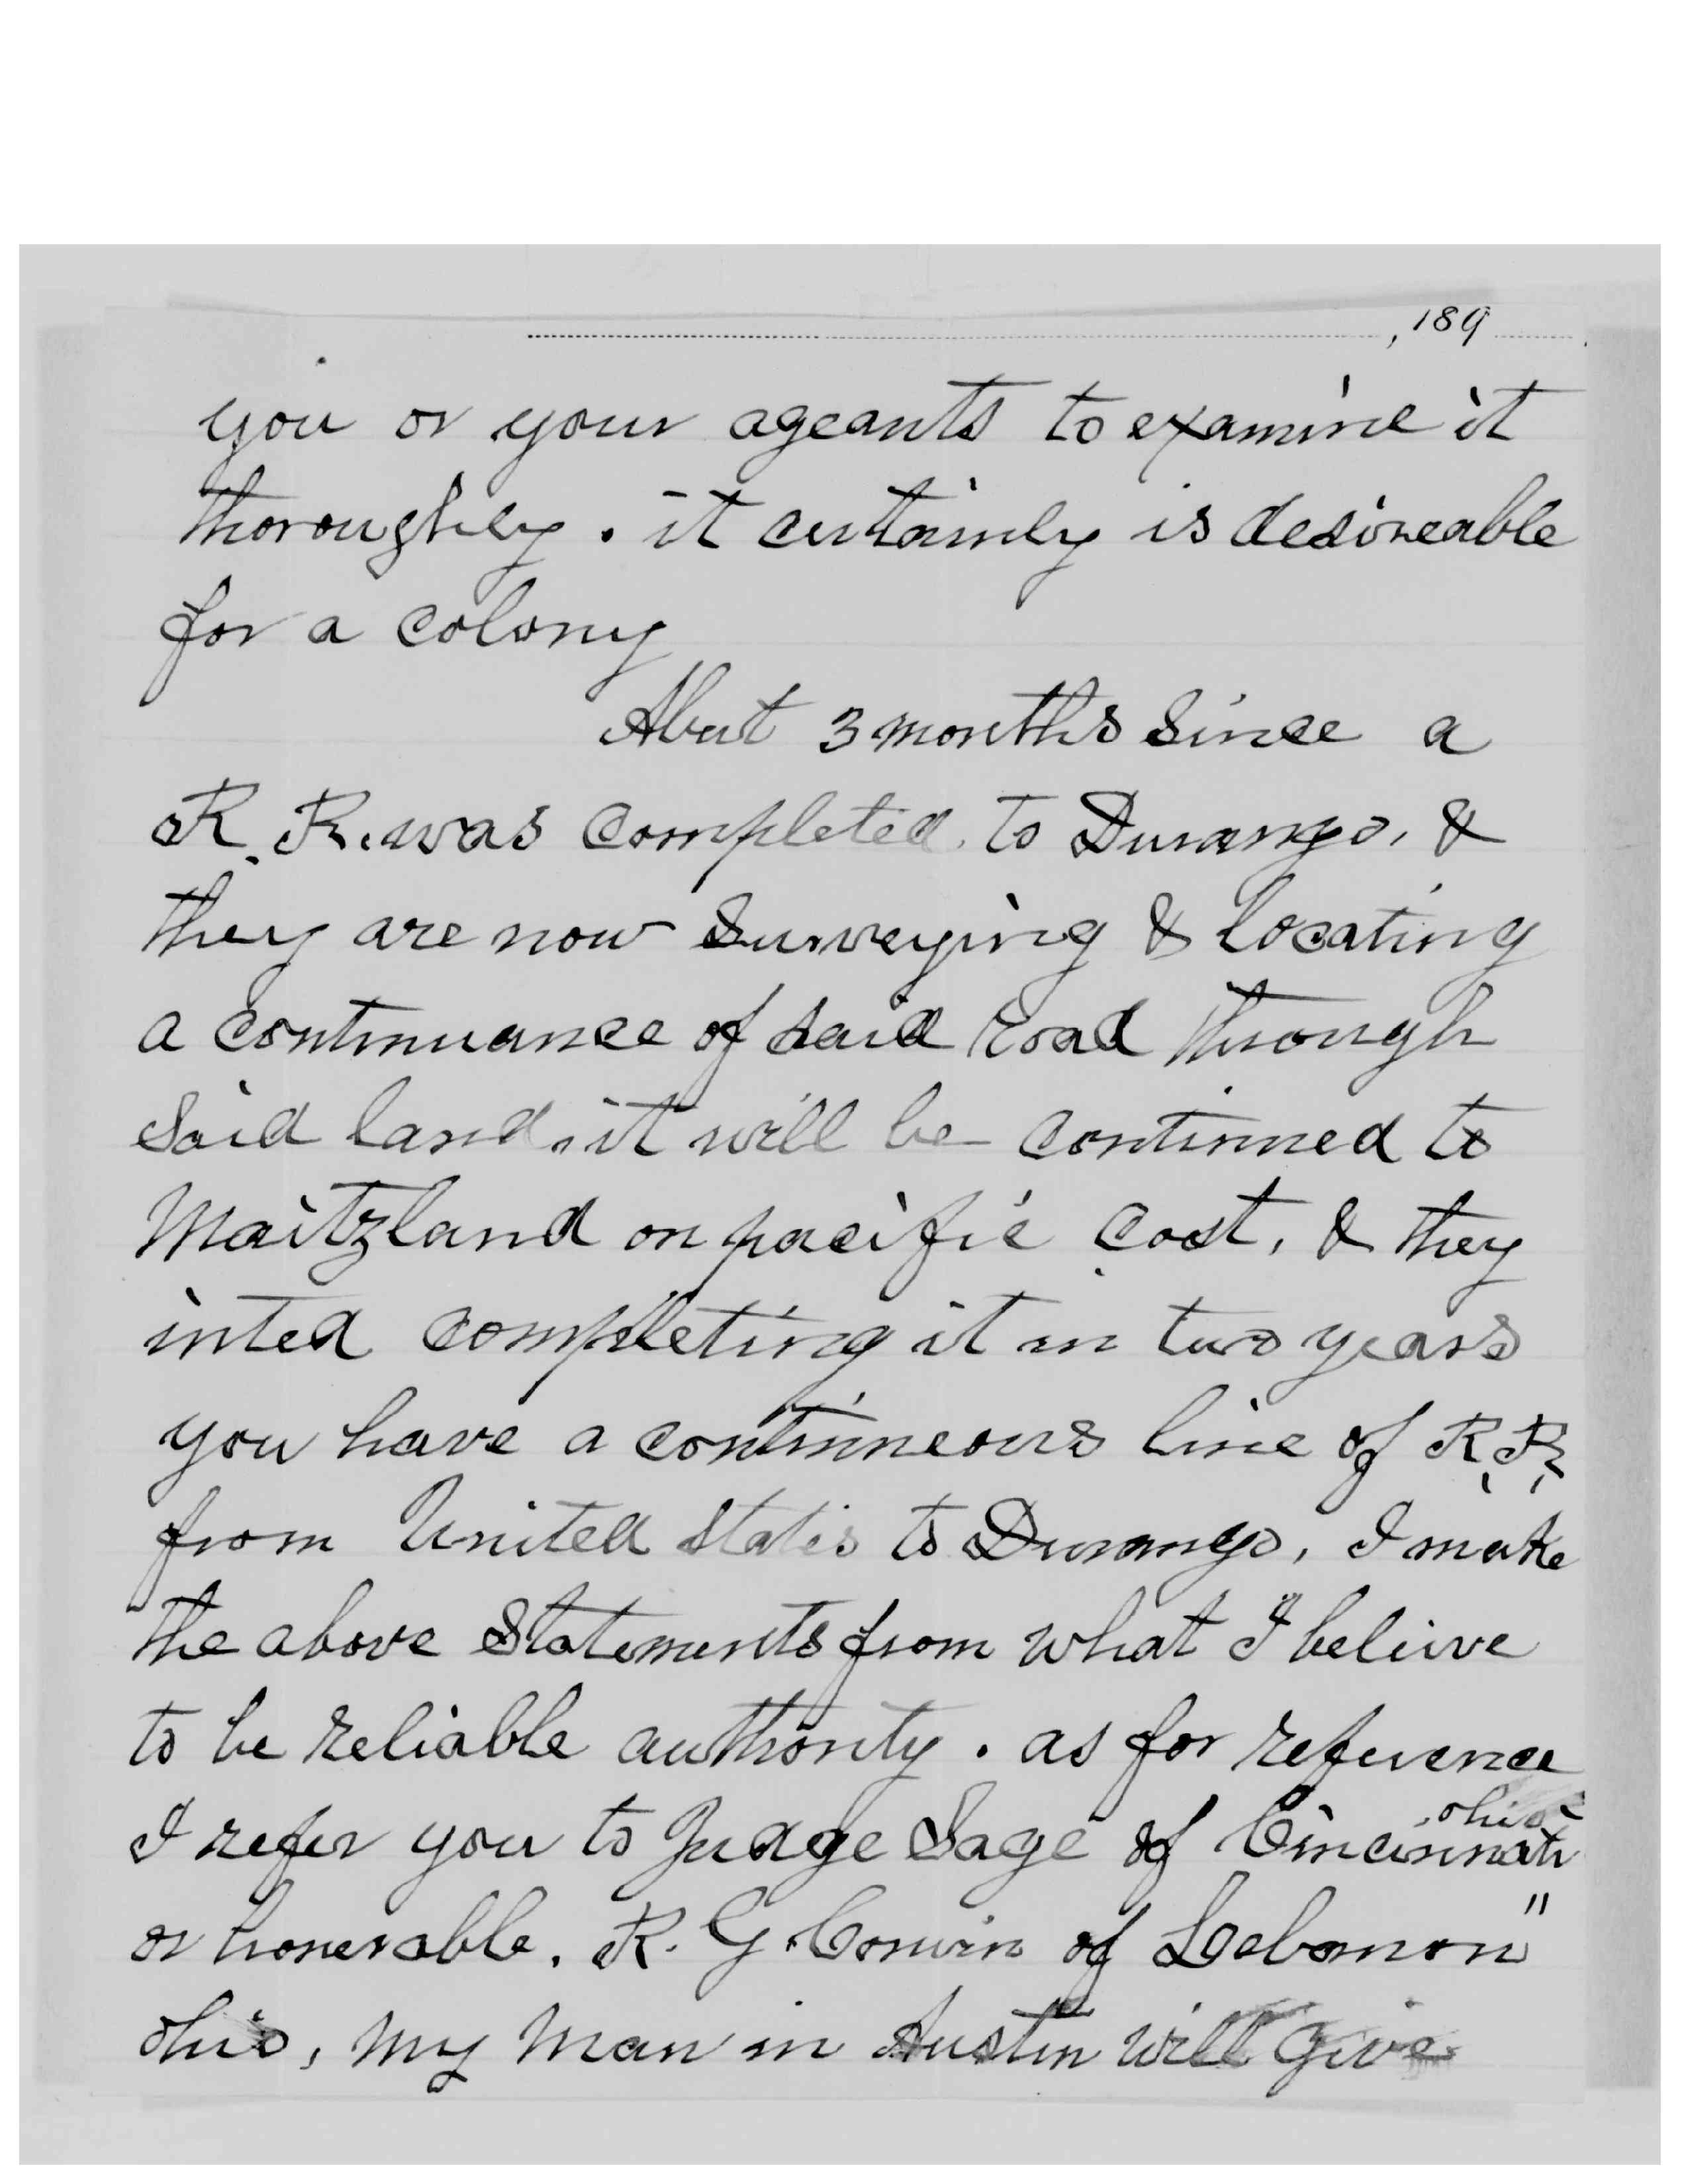 , 189
you or your ageants to examine it
thoroughly. it certainly is desireable
for a colony
Abut 3 months since a
R. R. was completed to Durango, &
they are now surveying & locating
a continuance of said road through
said land, it will be continued to
Maitzland on pacific cost, & they
inted completing it in two years
you have a continueous line of R. R.
from United States to Durango, I make
the above statements from what I believe
to be reliable authority. as for reference
I refer you to Judge Sage of Cincinnati ohio
or honerable. R. G. Corwin of Lebanon "
ohio, My man in Austin will give